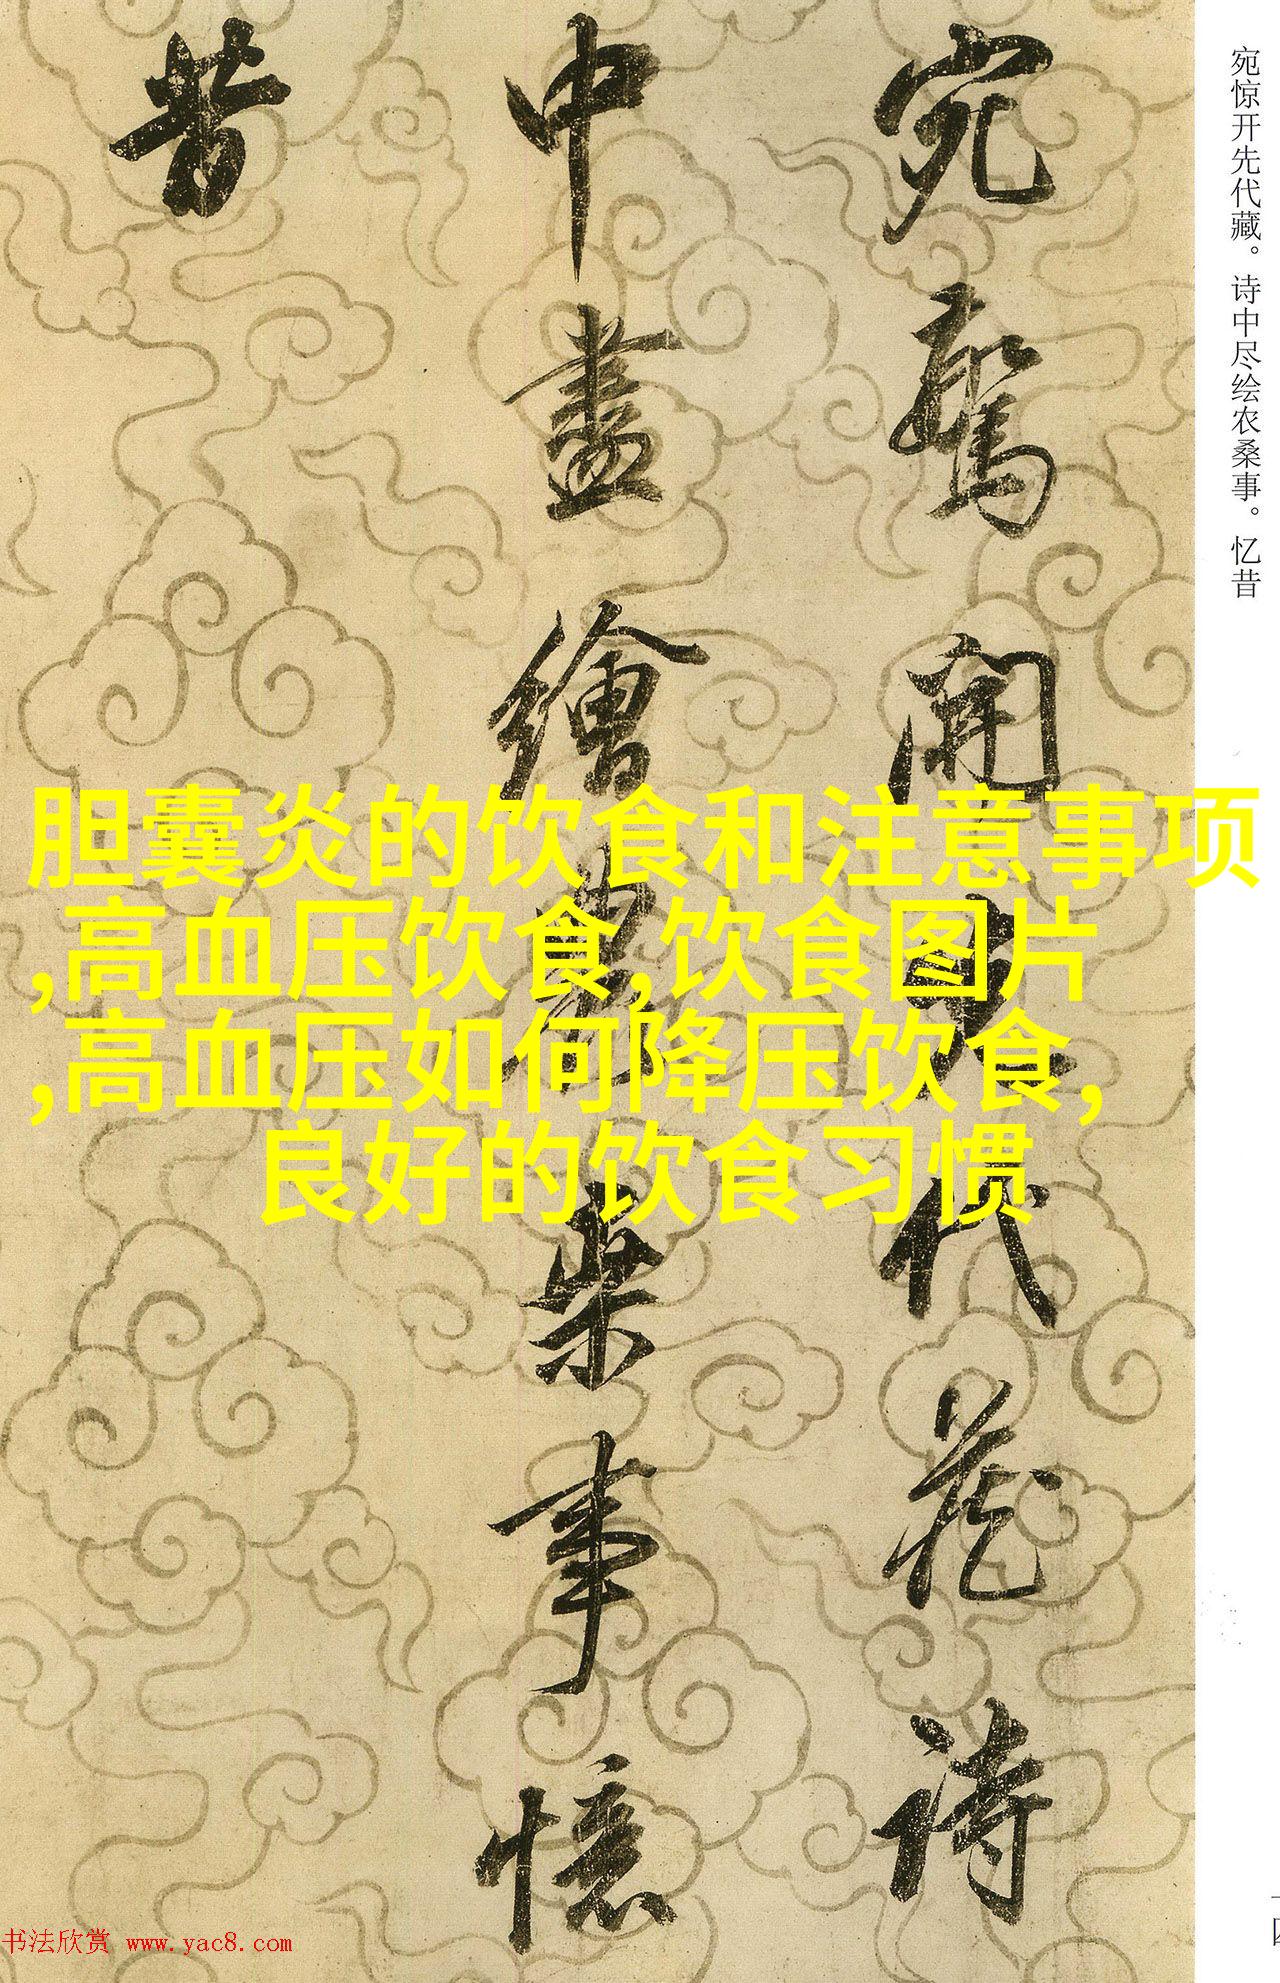 宛惊开先代藏。诗中尽绘农桑事。忆昔
宛驚開先代藏詩
中盡繪農桒事憶
昔
胆囊炎的饮食和注意事项
,高血压饮食,饮食图片
,高血压如何降压饮食,
良好的饮食习惯
书法欣赏 www.yac8.com